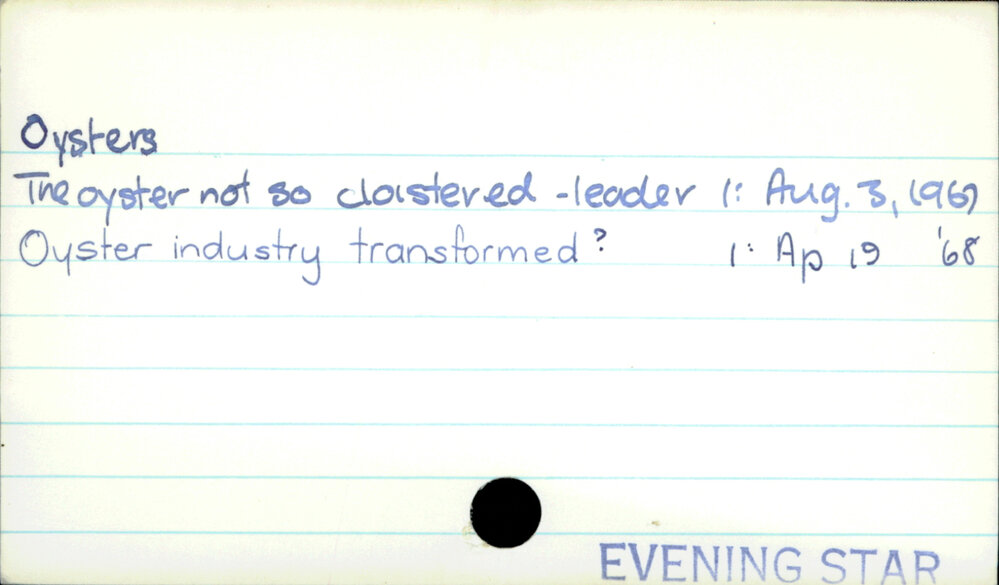 Oysters
The oyster not so cloistered - leader 1: Aug. 3, 1967
Oyster industry transformed? 1: Ap 19 '68
EVENING STAR